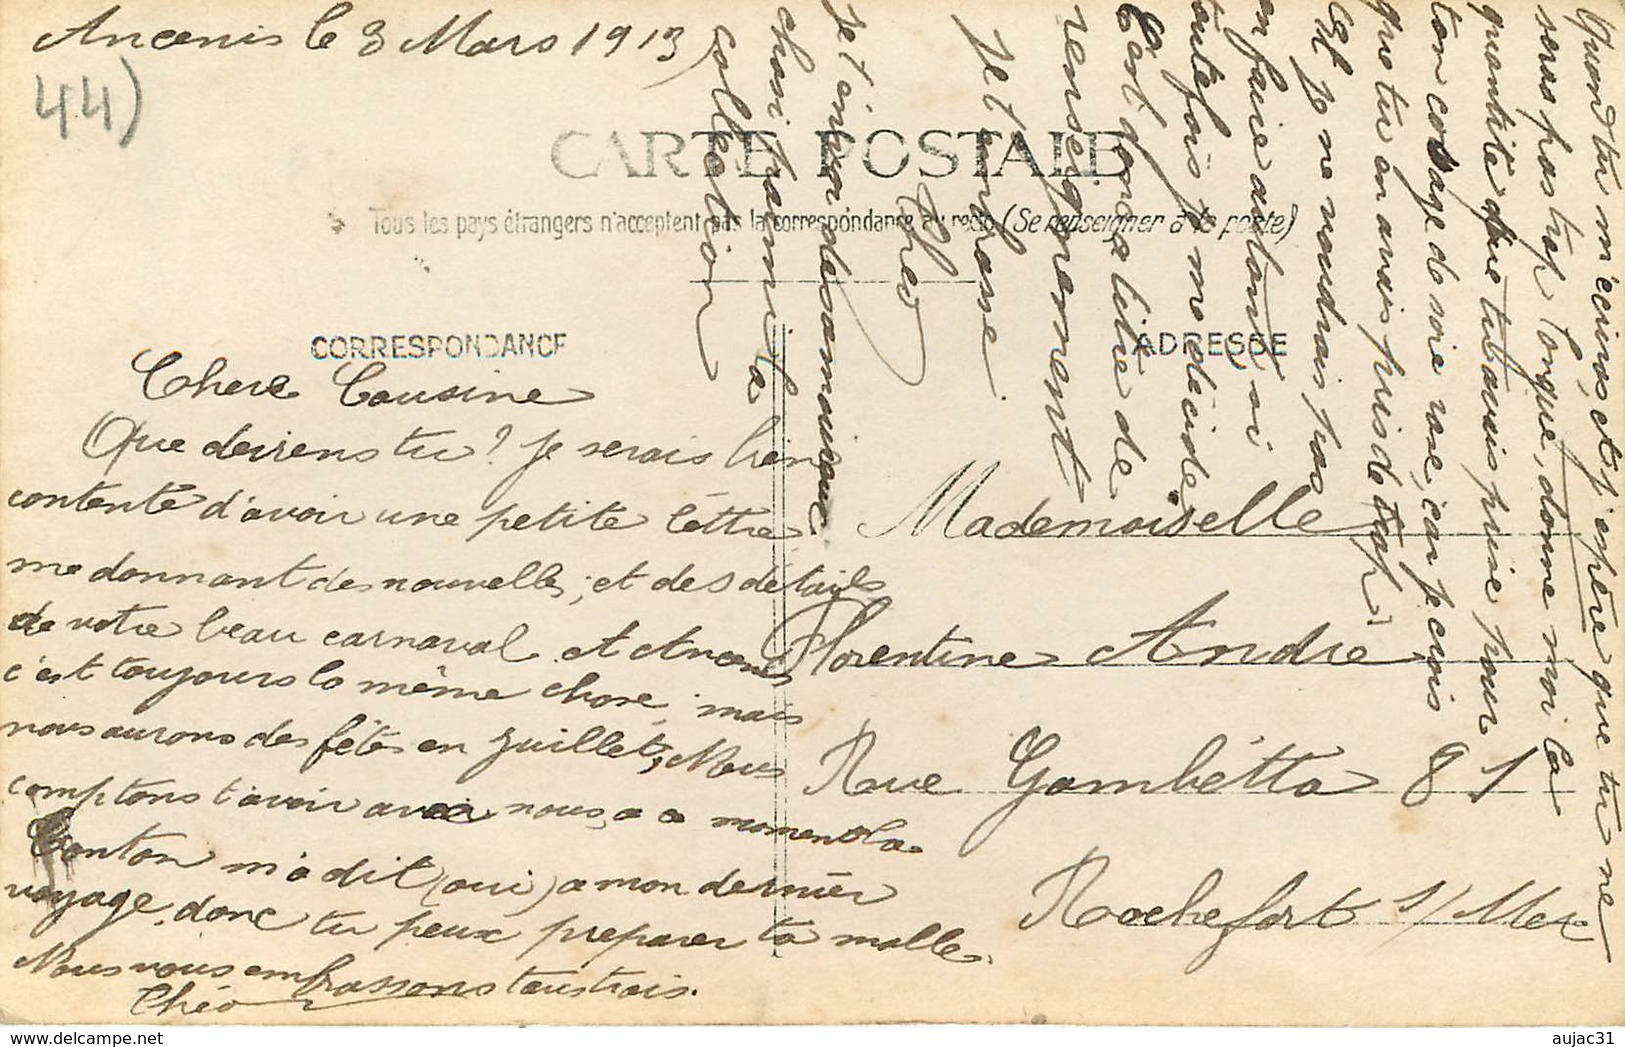 Ancenis le 8 Mars 1913
44)
CARTE POSTALE
Tous les pays étrangers n'acceptent pas la correspondance au recto (Se renseigner à la poste)
CORRESPONDANCE
ADRESSE
Chere Cousine
Que deviens tu ? Je serais bien
contente d'avoir une petite léttre
me donnant des nouvelles, et des details
de votre beau carnaval. A Ancenis
c'est toujours la même chose, mais
nous aurons des fêtes en juillet, Nous
comptons t'avoir avec nous, a a moment la
Tonton m'a dit (oui) a mon dernier
voyage, donc tu peux preparer ta malle.
Nous vous embrassons tous trois.
Théo
Mademoiselle
Florentine André
Rue Gambétta 81
Rochefort s/ Mer
Quand tu m'écriras, et j'espère que tu ne
seras pas trop longue, donne moi la
quantité que tu avais prise pour
ton corsage de soie rose, car je crois
que tu en avais pris de trop,
Et je ne voudrais pas
en faire autant, si
toutefois je me décide
C'est donc a titre de
renseignement
Je t'embrasse
Théo
Je t'envoi
choisi parmi ta
collection